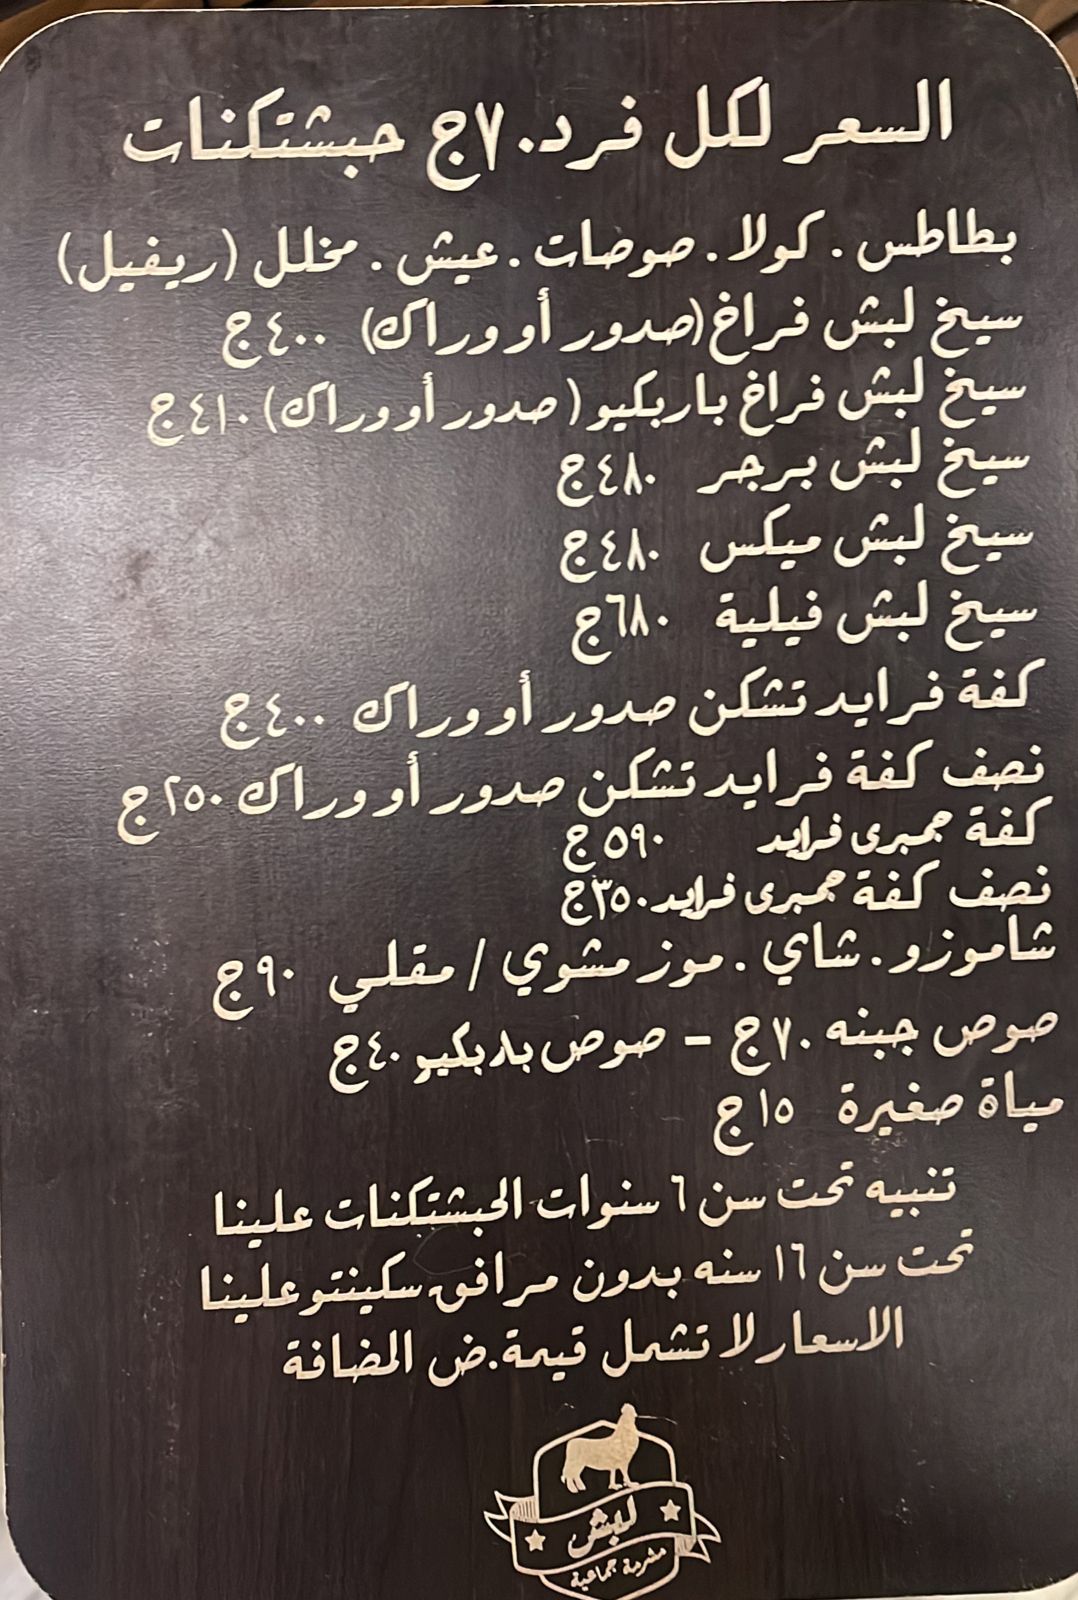 السعر لكل فرد ٧٠ج حبشتكنات
بطاطس . كولا . صوصات . عيش . مخلل (ريفيل)
سيخ لبش فراخ (صدور أو وراك) ٤٠٠ج
سيخ لبش فراخ باربكيو (صدور أو وراك) ٤١٠ج
سيخ لبش برجر ٤٨٠ج
سيخ لبش ميكس ٤٨٠ج
سيخ لبش فيلية ٦٨٠ج
كفة فرايد تشكن صدور أو وراك ٤٠٠ج
نصف كفة فرايد تشكن صدور أو وراك ٢٥٠ج
كفة جمبرى فرايد ٥٩٠ج
نصف كفة جمبرى فرايد ٣٥٠ج
شاموزو . شاي . موز مشوي / مقلي ٩٠ج
صوص جبنه ٧٠ج - صوص بدبكيو ٤٠ج
مياة صغيرة ١٥ج
تنبيه تحت سن ٦ سنوات الحبشتكنات علينا
تحت سن ١٦ سنه بدون مرافق سكينتو علينا
الاسعار لا تشمل قيمة.ض المضافة
لبش
مفرمة جماعية